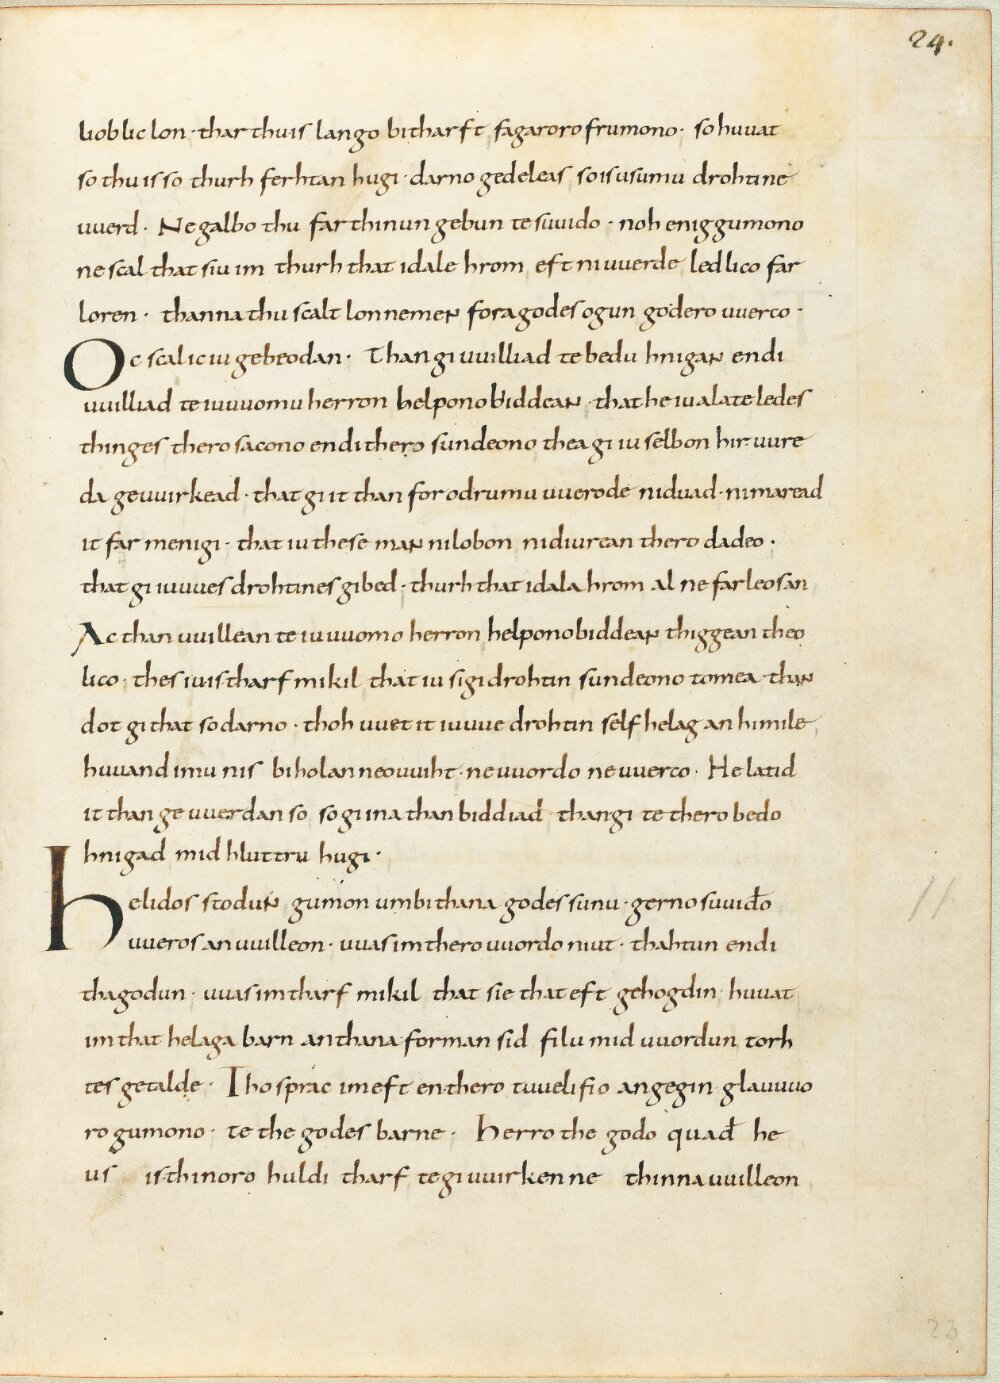 24.
lioblic lon · thar thu is lango bitharft fagaroro frumono · so huuat
so thu is so thurh ferhtan hugi · darno gedeleas so is usumu drohtine
uuerd · Ne galbo thu far thinun gebun te suuido · noh enig gumono
ne scal that siu im thurh that idale hrom eft ni uuerde ledlico far
loren · thanna thu scalt lon nemen fora godes ogun godero uuerco ·
Oc scal ic iu gebeodan · Than gi uuilliad te bedu hnigan endi
uuilliad te iuuuomu herron helpono biddean · that he iu alate ledes
thinges thero sacono endi thero sundeono thea gi iu selbon hir uure
da geuuirkead · that gi it than for odrumu uuerode ni duad · ni maread
it far menigi · that iu these man ni lobon ni diurean thero dadeo ·
that gi iuuues drohtines gibed · thurh that idala hrom al ne farleosan
Ac than uuillean te iuuuomo herron helpono biddean thiggean theo
lico · thes iu is tharf mikil that iu sigidrohtin sundeono tomea · than
dot gi that so darno · thoh uuet it iuuue drohtin self helag an himile
huuand imu nis biholan neouuiht · ne uuordo ne uuerco · He latid
it than geuuerdan so so gi ina than biddiad than gi te thero bedo
hnigad mid hluttru hugi ·
helidos stodun gumon umbi thana godes sunu · gerno suuiđo
uueros an uuilleon · uuas im thero uuordo niut · thahtun endi
thagodun · uuas im tharf mikil that sie that eft gehogdin huuat
im that helaga barn an thana forman sid filu mid uuordun torh
tes getalde · Tho sprac im eft en thero tuuelifio angegin glauuuo
ro gumono · te the godes barne · Herro the godo quađ he
us is thinoro huldi tharf te giuuirkenne thinna uuilleon
11
23